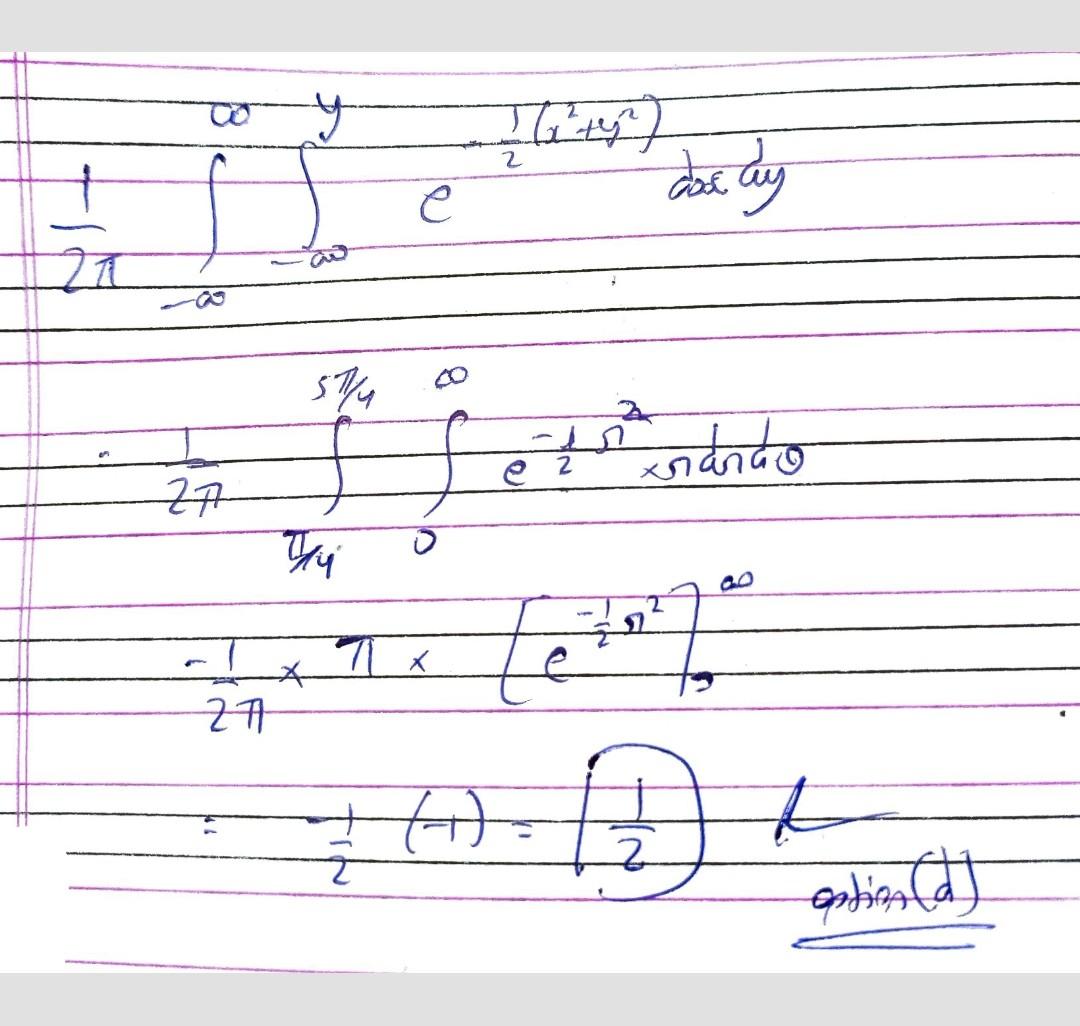 1/2π ∫_{-∞}^{∞} ∫_{-∞}^{y} e^{-1/2(x²+y²)} dx dy
= 1/2π ∫_{π/4}^{5π/4} ∫_{0}^{∞} e^{-1/2 r²} × r dr dθ
-1/2π × π × [e^{-1/2 r²}]_{0}^{∞}
= -1/2 (-1) = 1/2
option (d)